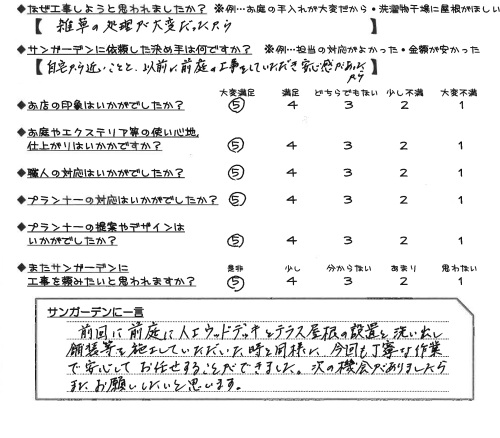 ◆なぜ工事しようと思われましたか？ ※例…お庭の手入れが大変だから・洗濯物干場に屋根がほしい
【 雑草の処理が大変だったから 】
◆サンガーデンに依頼した決め手は何ですか？ ※例…担当の対応がよかった・金額が安かった
【 自宅から近いことと、以前に前庭の工事をしていただき安心感があったから 】
大変満足 満足 どちらでもない 少し不満 大変不満
◆お店の印象はいかがでしたか？ 5 4 3 2 1
◆お庭やエクステリア等の使い心地、
仕上がりはいかがですか？ 5 4 3 2 1
◆職人の対応はいかがでしたか？ 5 4 3 2 1
◆プランナーの対応はいかがでしたか？ 5 4 3 2 1
◆プランナーの提案やデザインは
いかがでしたか？ 5 4 3 2 1
◆またサンガーデンに 是非 少し 分からない あまり 思わない
工事を頼みたいと思われますか？ 5 4 3 2 1
サンガーデンに一言
前回に前庭に人工ウッドデッキとテラス屋根の設置と洗い出し
舗装等を施工していただいた時と同様に、今回も丁寧な作業
で安心してお任せすることができました。次の機会がありましたら
またお願いしたいと思います。